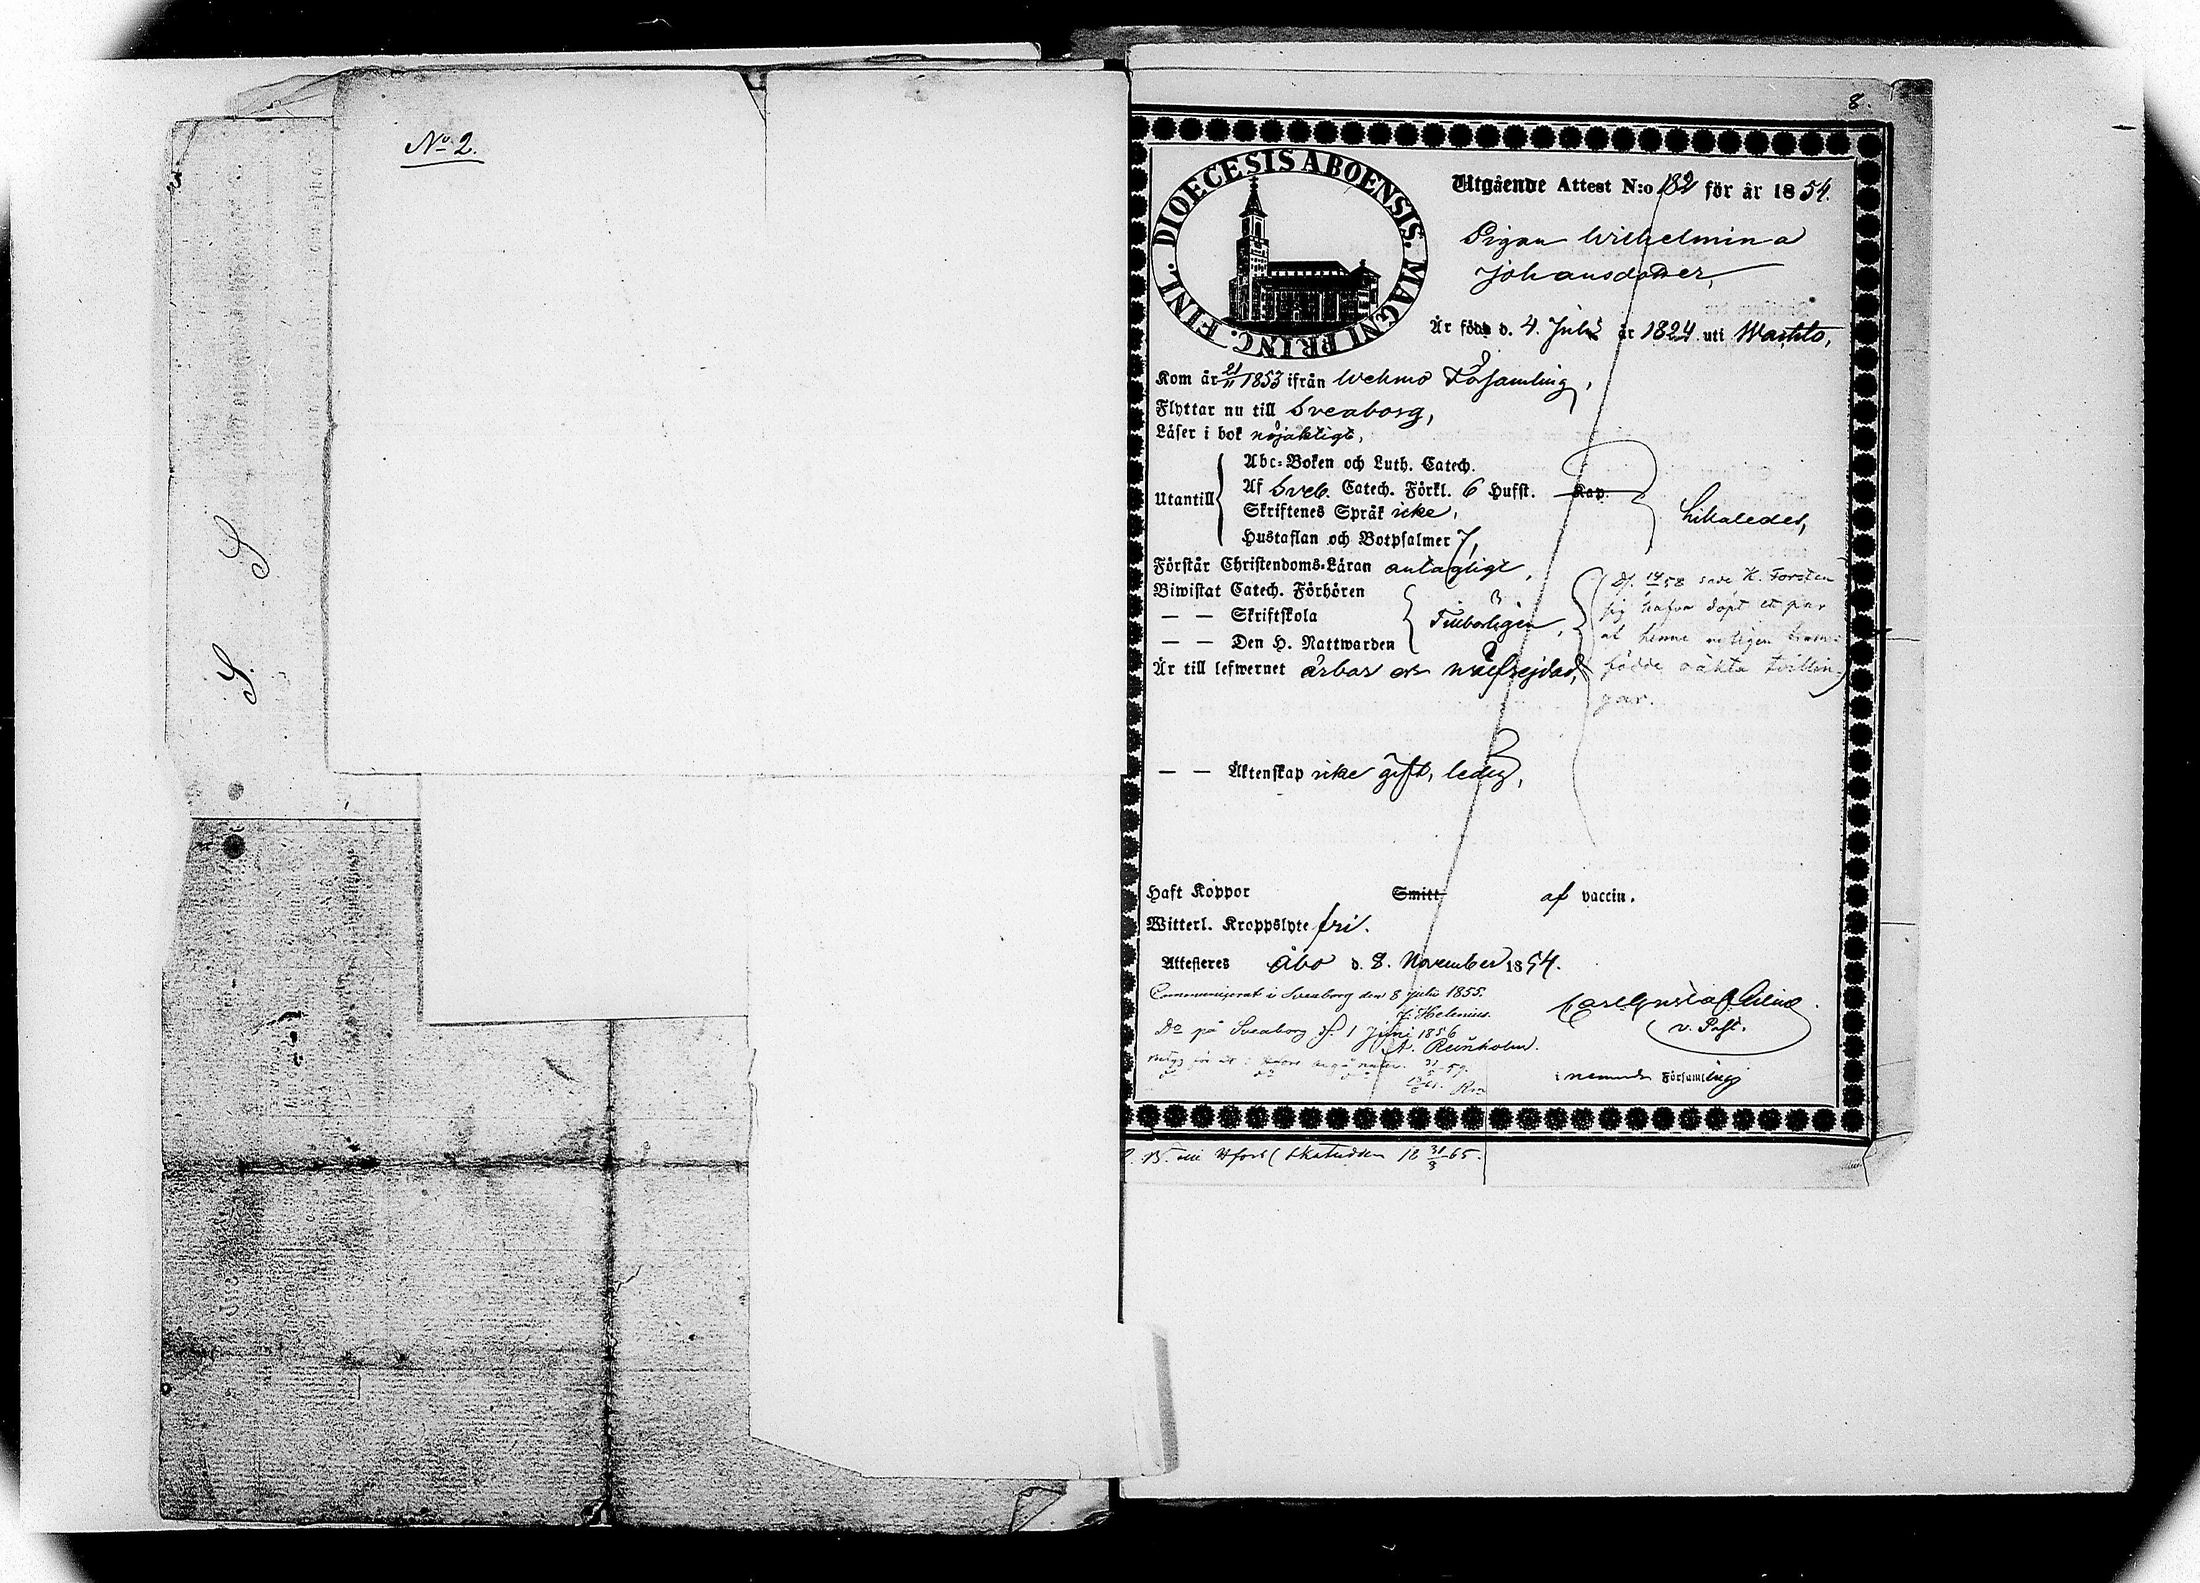 No 2.
8.
DIOECESIS ABOENSIS. MAGNI PRINC. FINL.
Utgående Attest N:o 182 för år 1854.
Pigan Wilhelmina
Johansdotter,
Är född d. 4. Julii år 1824 uti Wachto,
Kom år 21/11 1853 ifrån Wehmo Församling,
Flyttar nu till Sveaborg,
Läser i bok nöjaktigt,
Abc-Boken och Luth. Catech.
Utantill Af Sveb. Catech. Förkl. 6 Hufst. Kap.
Skriftenes Språk icke,
Likaledes,
Hustaflan och Botpsalmer 7,
Förstår Christendoms-Läran antagligt,
Biwistat Catech. Förhören
— — Skriftskola
Tillbörligen,
— — Den H. Nattwarden
Är till lefwernet ärbar och wälfrejdad,
sade K. Forstén
sig hafva döpt ett par
af henne
födde oäkta tvillin-
gar.
— — Äktenskap icke gift, ledig,
Haft Koppor Smitt af vaccin.
Witterl. Kroppslyte fri.
Attesteras Åbo d. 8. November 1854.
Communicerat i Sveaborg den 8 julii 1855.
J. Helenius.
Do på Sveaborg d. 1 Juni 1856
A. Reinholm.
Carl Gustaf
v. Past.
i nemnde Församling
Skatudden 18 31/3 65.
S S